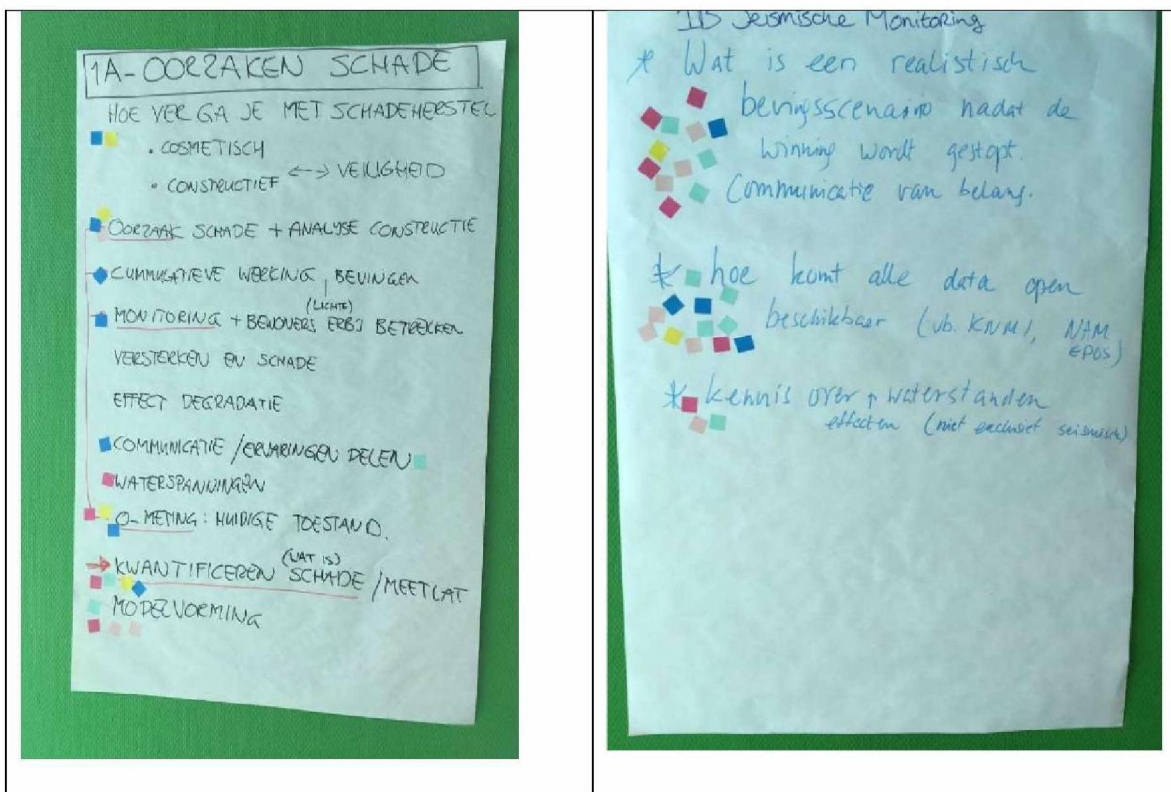 1A-OORZAKEN SCHADE
HOE VER GA JE MET SCHADEHERSTEL
• COSMETISCH
• CONSTRUCTIEF <--> VEILIGHEID
OORZAAK SCHADE + ANALYSE CONSTRUCTIE
CUMMULATIEVE WERKING, BEVINGEN
(LICHTE)
MONITORING + BEWONERS ERBIJ BETREKKEN
VERSTERKEN EN SCHADE
EFFECT DEGRADATIE
COMMUNICATIE / ERVARINGEN DELEN
WATERSPANNINGEN
O-METING: HUIDIGE TOESTAND.
(WAT IS)
→ KWANTIFICEREN SCHADE / MEETLAT
MODELVORMING
Seismische Monitoring
* Wat is een realistisch
bevingsscenario nadat de
winning wordt gestopt.
Communicatie van belang.
* hoe komt alle data open
beschikbaar (vb. KNMI, NAM
EPOS)
* kennis over waterstanden
effecten (niet exclusief seismisch)